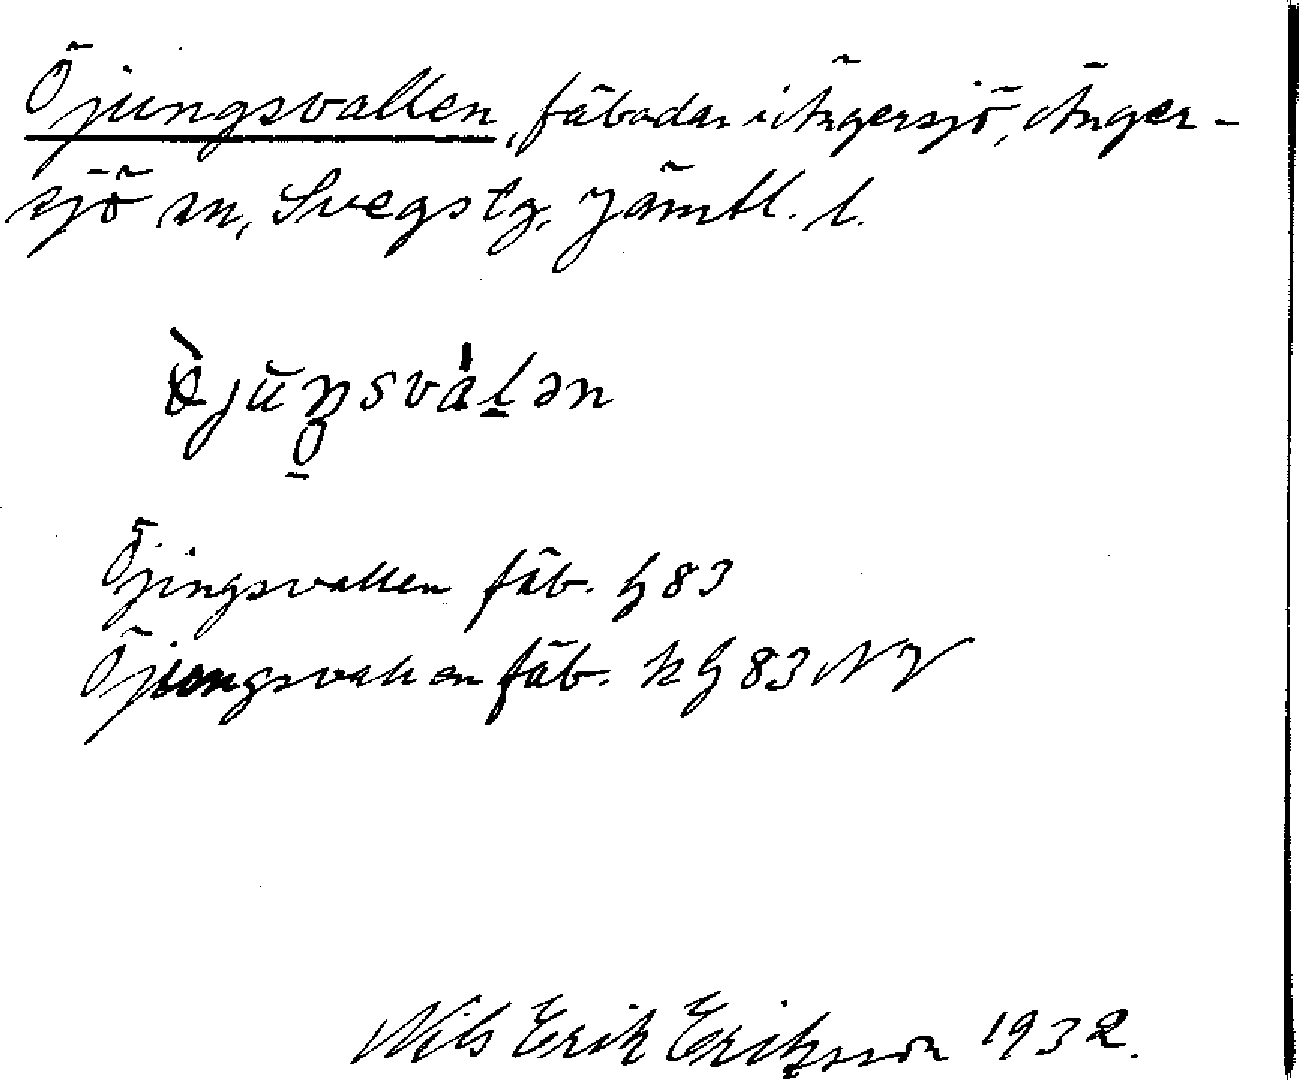 Öjungsvallen, fäbodar i Ängersjö, Änger-
sjö sn, Svegs tg, Jämtl. l.
Öjingsvallen fäb. G 83
Öjungsvallen fäb. k G 83 NV
Nils Erik Eriksson 1932.